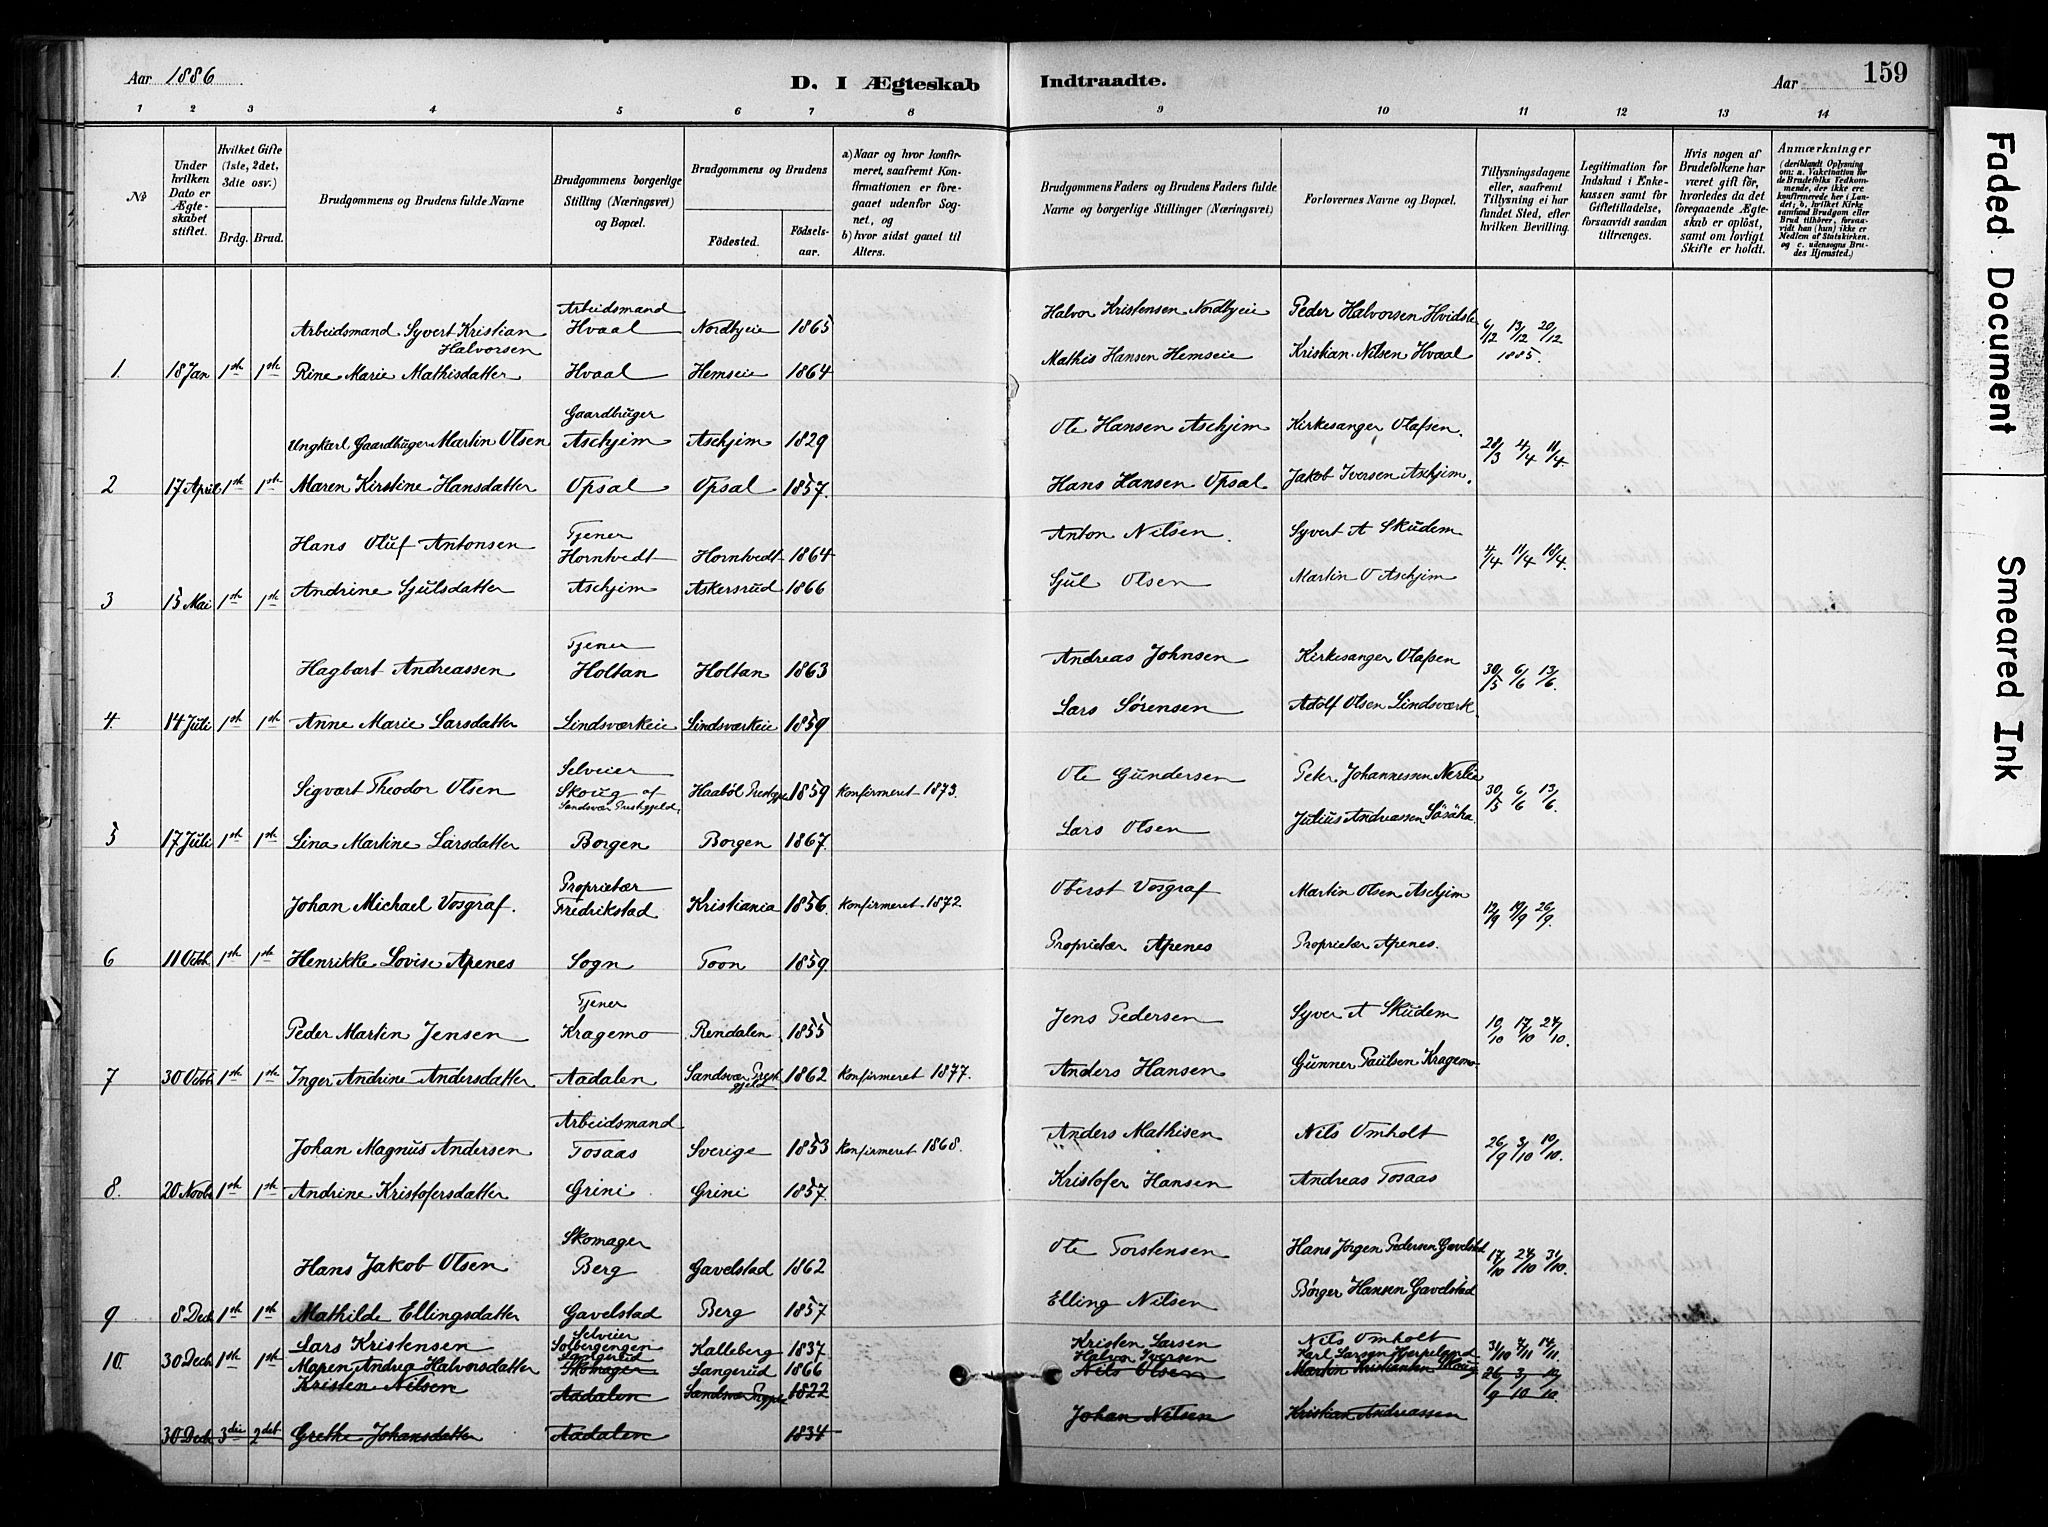 Aar 1886
D. I Ægteskab Indtraadte.
Aar
159
1 2 3 4 5 6 7 8 9 10 11 12 13 14
№
Under hvilken Dato er Ægteskabet stiftet.
Hvilket Gifte (1ste, 2det, 3die osv.)
Brdg. Brud.
Brudgommens og Brudens fulde Navne
Brudgommens borgerlige Stilling (Næringsvei) og Bopæl.
Brudgommens og Brudens
Födested. Födselsaar.
a) Naar og hvor konfirmeret, saafremt Konfirmationen er foregaaet udenfor Sognet, og
b) hvor sidst gaaet til Alters.
Brudgommens Faders og Brudens Faders fulde Navne og borgerlige Stillinger (Næringsvei)
Forlovernes Navne og Bopæl.
Tillysningsdagene eller, saafremt Tillysning ei har fundet Sted, efter hvilken Bevilling.
Legitimation for Indskud i Enkekassen samt for Giftetilladelse, forsaavidt saadan tiltrænges.
Hvis nogen af Brudefolkene har været gift för, hvorledes da det foregaaende Ægteskab er oplöst, samt om lovligt Skifte er holdt.
Anmærkninger (deriblandt Oplysning om: a. Vakcination for de Brudefolks Vedkommende, der ikke ere konfirmerede her i Landet; b. hvilket Kirkesamfund Brudgom eller Brud tilhörer, forsaavidt han (hun) ikke er Medlem af Statskirken, og c. udensogns Brudes Hjemsted.)
Arbeidsmand Syvert Kristian Halvorsen Arbeidsmand Hvaal Nordbyeie 1865 Halvor Kristensen Nordbyeie Peder Halvorsen 6/12 13/12 20/12 1885.
1. 18 Jan 1ste 1ste Rine Marie Mathisdatter Hvaal Hemseie 1864 Mathis Hansen Hemseie Kristian Nilsen Hvaal
Ungkarl Gaardbruger Martin Olsen Gaardbruger Aschjim Aschjim 1829 Ole Hansen Aschjim Kirkesanger Olafsen. 28/3 4/4 11/4.
2 17 April 1ste 1ste Maren Kirstine Hansdatter Opsal Opsal 1857. Hans Hansen Opsal Jakob Iversen Aschjim.
Hans Oluf Antonsen Tjener Horntvedt Horntvedt 1864 Anton Nilsen. Syvert A Skudem 4/4 11/4 18/4.
3 15 Mai 1ste 1ste Andrine Sjulsdatter Aschjim Askersrud 1866 Sjul Olsen Martin O Aschjim
Hagbart Andreassen Tjener Holtan Holtan 1863 Andreas Johnsen Kirkesanger Olafsen 30/5 6/6 13/6.
4. 14 Juli 1ste 1ste Anne Marie Larsdatter Lindsværkeie Lindsværkeie 1859 Lars Sørensen Adolf Olsen Lindsværk.
Sigvart Theodor Olsen Selveier Skoug af Sandsvær Prestegjeld, Haabøl 1859 Konfirmeret 1873. Ole Gundersen Peter Johannessen Nerlie 30/5 6/6 13/6.
5 17 Juli 1ste 1ste Lina Martine Larsdatter Borgen Borgen 1867. Lars Olsen Julius Andreassen
Johan Michael Vosgraf. Proprietær Fredrikstad Kristiania 1856. Konfirmeret 1872. Oberst Vosgraf Martin Olsen Aschjim 12/9 19/9 26/9.
6 11 Octob. 1ste 1ste Henrikke Lovise Apenes Sogn Toon 1859. Proprietær Apenes Proprietær Apenes.
Peder Martin Jensen Tjener Kragemo Rendalen 1855 Jens Pedersen Syver A Skudem 10/10 17/10 24/10.
7 30 Octob 1ste 1ste Inger Andrine Andersdatter Aadalen Sandsvær Prestgjeld 1862 Konfirmeret 1877. Anders Hansen Gunner Paulsen Kragemo
Johan Magnus Andersen Arbeidsmand Tosaas Sverige 1853 Konfirmeret 1868. Anders Mathisen Nils Omholt 26/9 3/10 10/10.
8. 20 Novbr 1ste 1ste Andrine Kristofersdatter Grini Grini 1857. Kristofer Hansen Andreas Tosaas
Hans Jakob Olsen Skomager Berg Gavelstad 1862 Ole Torstensen Hans Jörgen Pedersen Gavelstad 17/10 24/10 31/10.
9 8 Dec 1ste 1ste Mathilde Ellingsdatter Gavelstad Berg 1857 Elling Nilsen Børger Hansen Gavelstad
Lars Kristensen Selveier Solbergengen Kalleberg 1837 Kristen Larsen Nils Omholt 31/10 7/11 14/11.
10. 30 Dec 1ste 1ste Maren Andrea Halvorsdatter Langerud Langerud 1866 Halvor Iversen Karl Larsen
Kristen Nilsen Skomager Aadalen 1822 Nils Olsen Martin Kristiansen Skoug 26/9 3/10 10/10
30 Dec 3die 2det Grethe Johansdatter Aadalen 1834 Johan Nilsen Kristian Andreassen
Faded Document
Smeared Ink